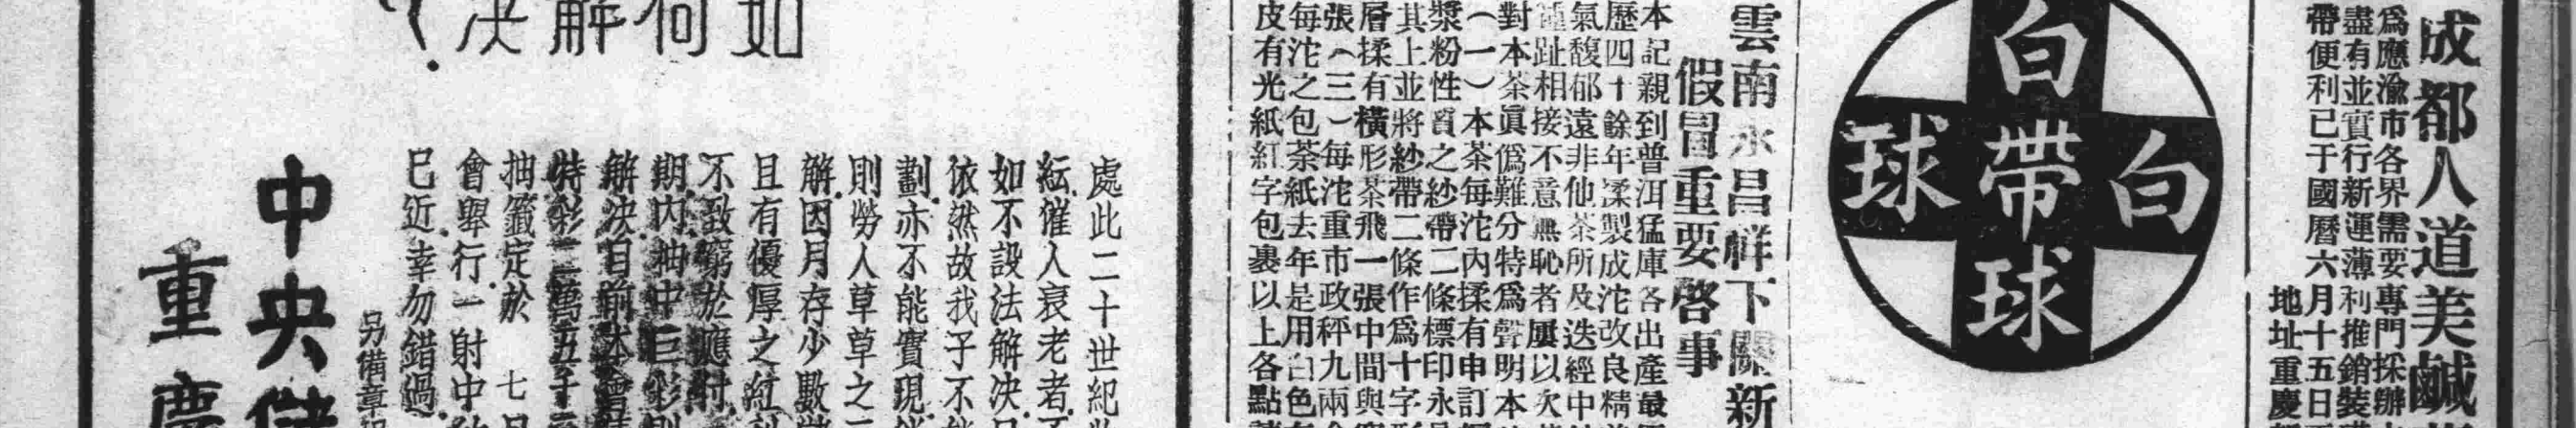 成都人道美鹹
爲應渝市各界需要專門採辦
盡有並實行新運薄利推銷裝
帶便利已于國曆六月十五日
地址重慶
白
球帶白
球
雲南永昌祥下關新
假冒重要啓事
本記親到普洱猛庫各出產最
歷四十餘年揉製成沱改良精
氣馥郁遠非他茶所及迭經中
趾相接不意無恥者屢以次
對本茶眞僞難分特爲聲明本
(一)本茶每沱內揉有申訂
漿粉性質之紗帶二條標印永
其上並將紗帶二條作爲十字形
層揉有橫形茶飛一張中間與
張(三)每沱重市政秤九兩
每沱之包茶紙去年是用白色
皮有光紙紅字包裹以上各點
如何解決?
處此二十世紀
紜催人衰老者
如不設法解決
依然故我子不
劃亦不能實現
則勞人草草之
解因月存少數
且有優厚之紅利
不致窮於應付
期內抽中巨彩則
解決目前
特彩二萬五千元
抽籤定於 七月
會舉行一射中
已近幸勿錯過
另備章
中央儲
重慶